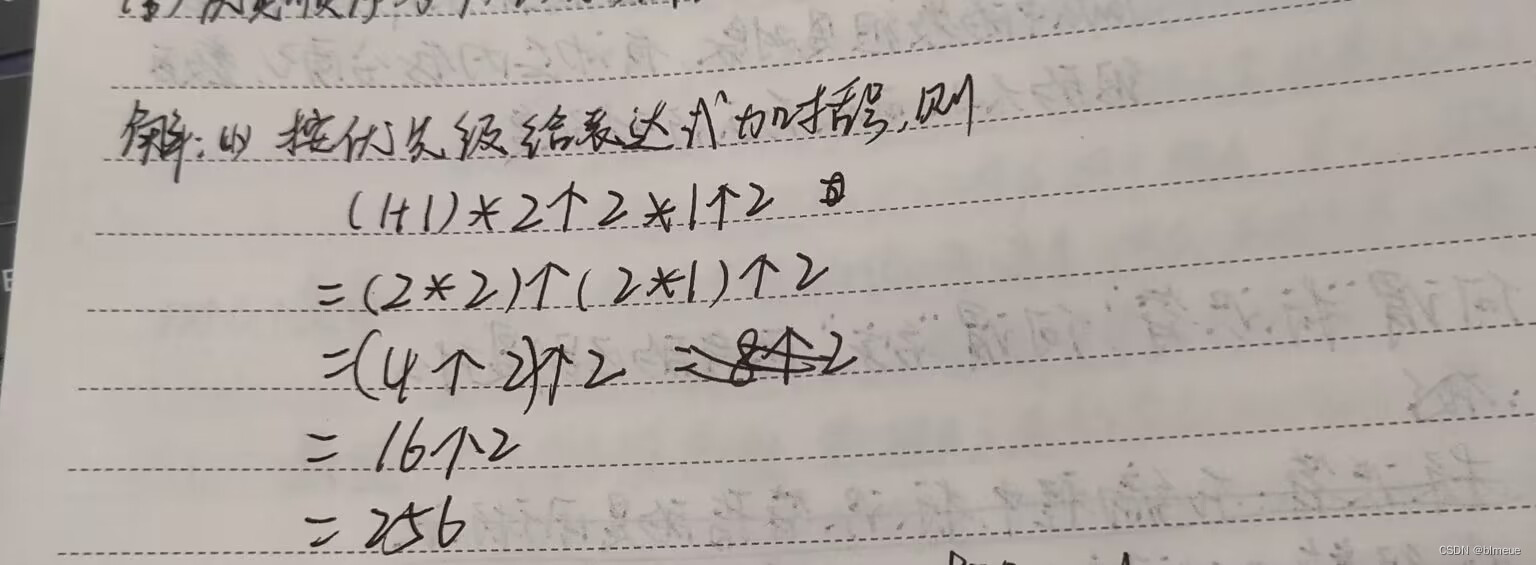 解:(1) 按优先级给表达式加括号,则
(1+1)*2↑2*1↑2
=(2*2)↑(2*1)↑2
=(4↑2)↑2 =8↑2
=16↑2
=256
CSDN @blmeue